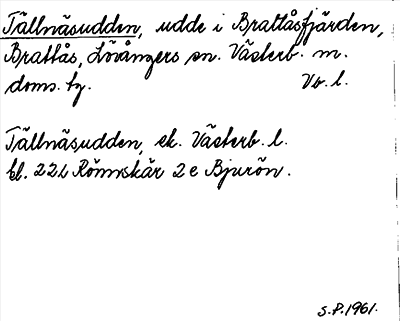 Tällnäsudden, udde i Brattåsfjärden,
Brattås, Lövångers sn. Västerb. m.
doms. tg. Vb. l.
Tällnäsudden, ek. Västerb. l.
bl. 22L Rönnskär 2 e Bjurön.
S.P. 1961.